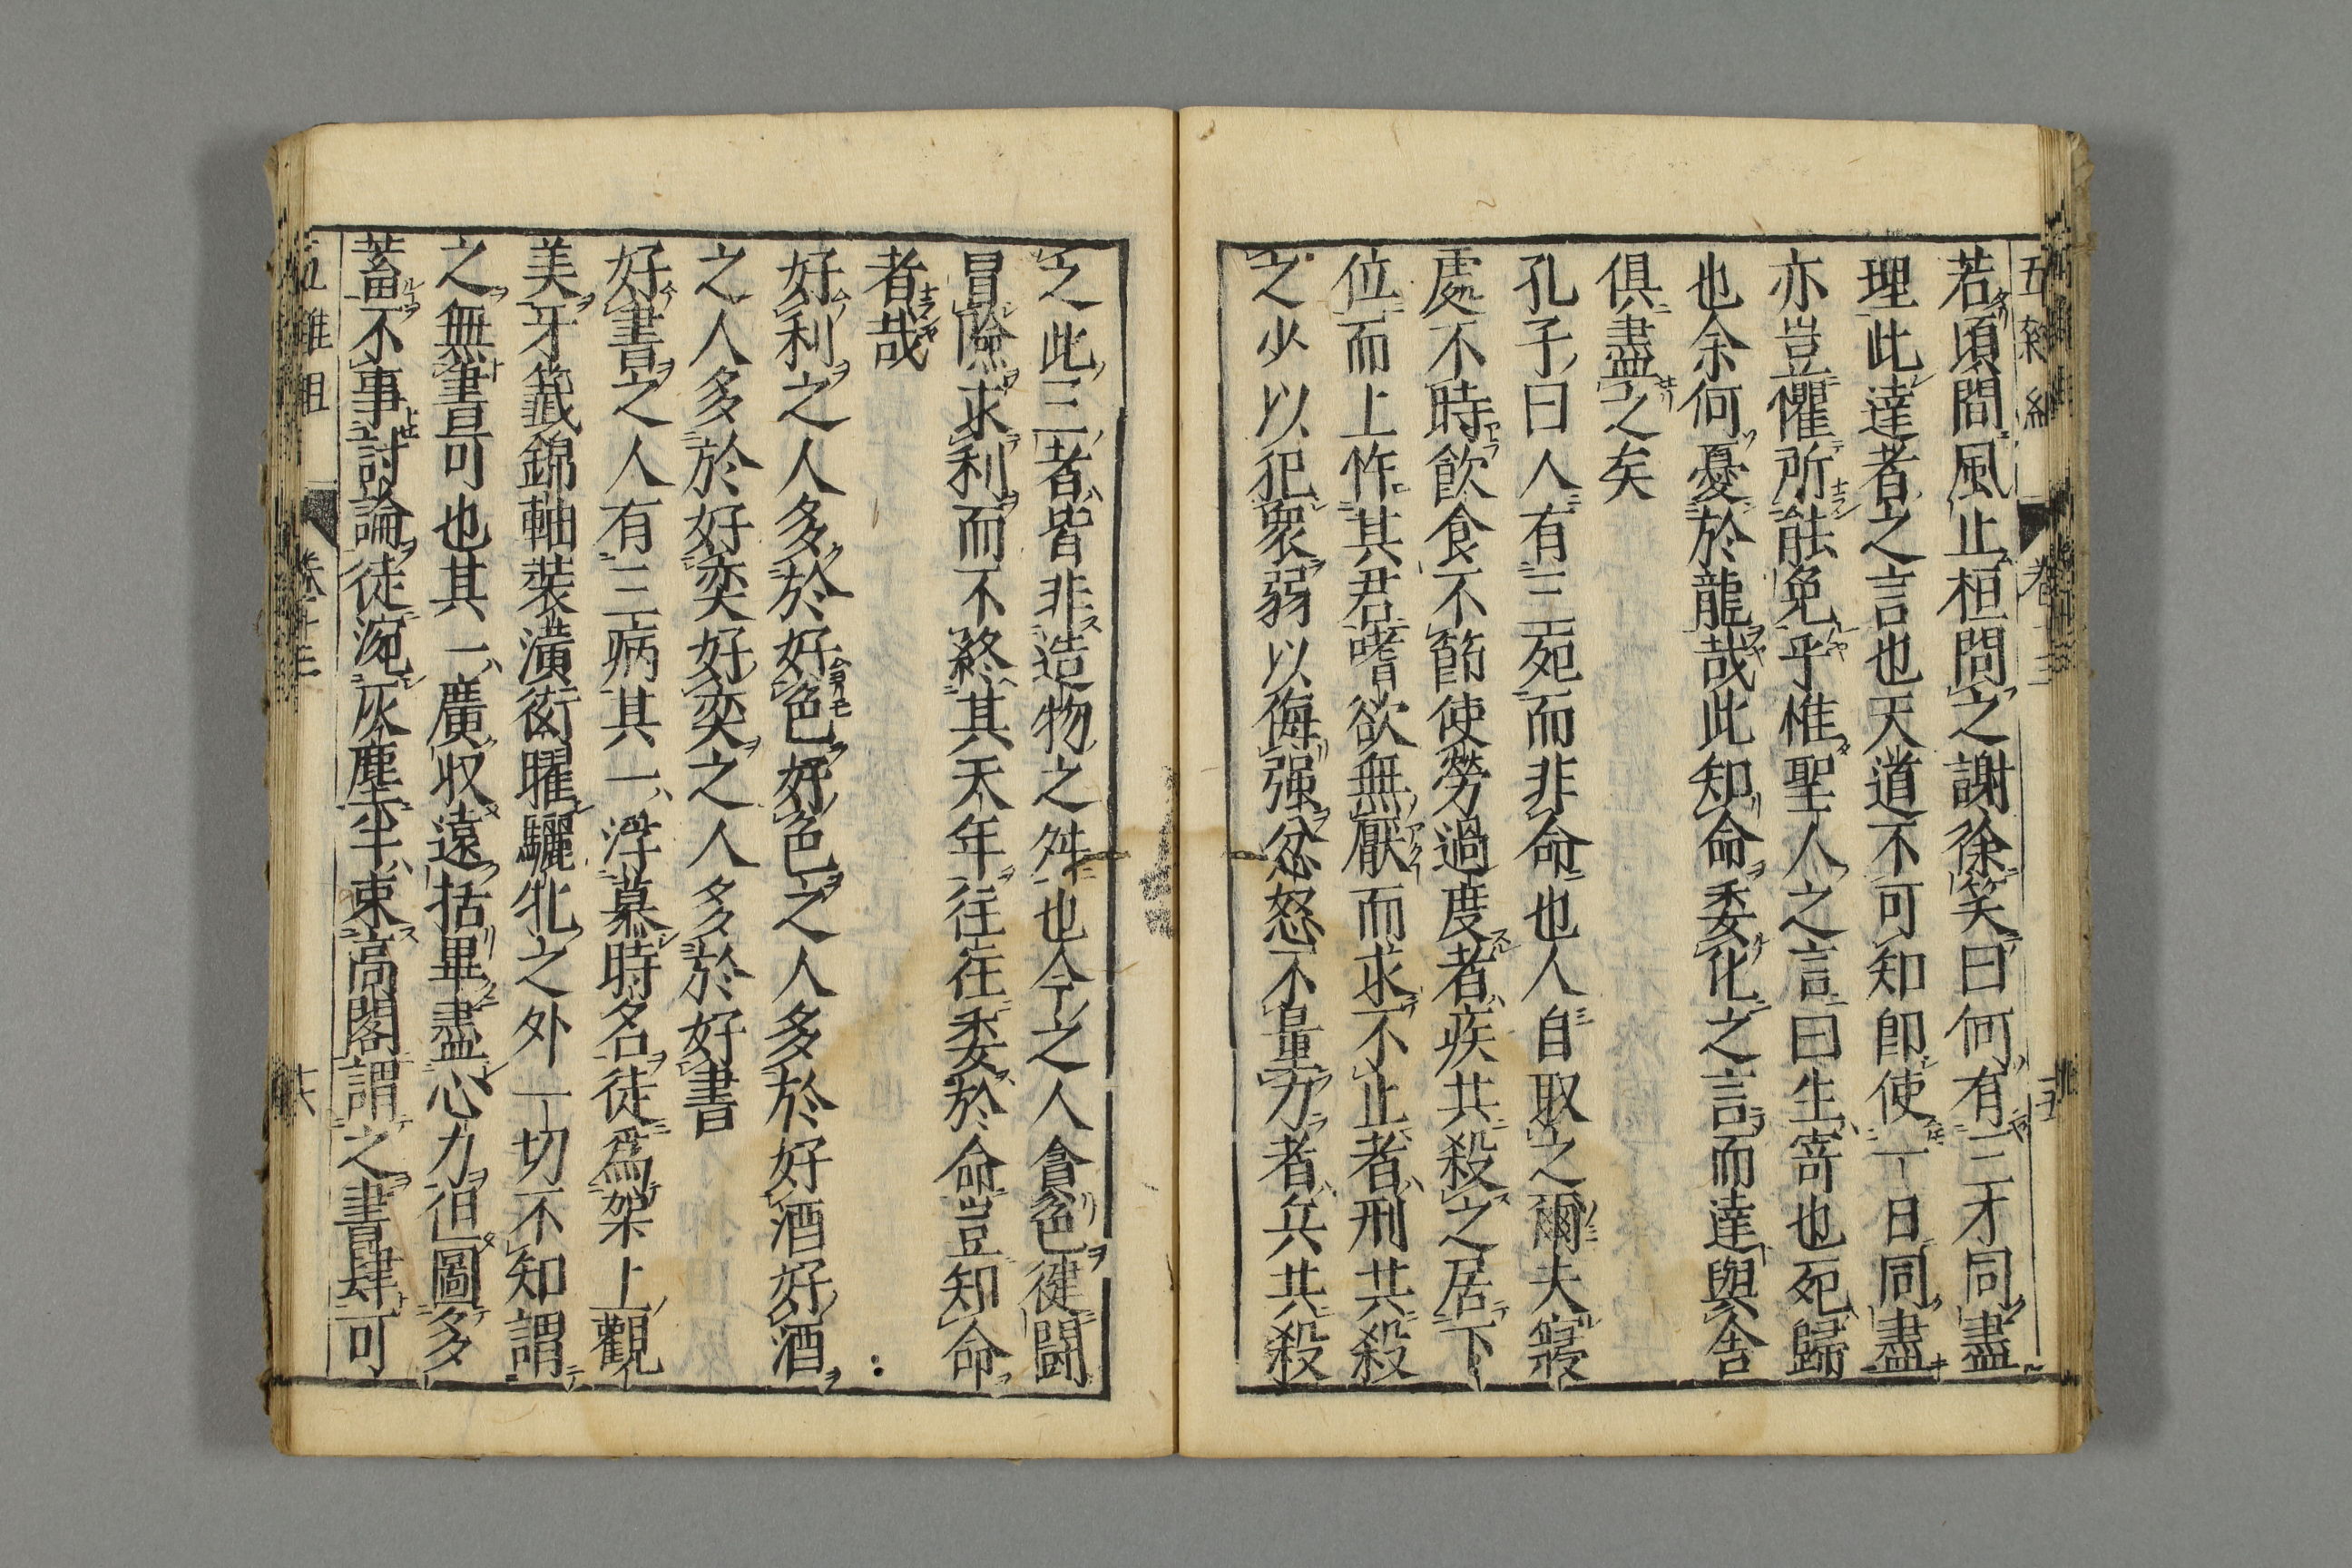 若頃間風止桓問之謝徐笑曰何有三才同盡
理此達者之言也天道不可知卽使一日同盡
亦豈懼所能免乎惟聖人之言曰生寄也死歸
也余何憂於龍哉此知命委化之言而達與舍
俱盡之矣
孔子曰人有三死而非命也人自取之爾夫寢
處不時飲食不節使勞過度者疾共殺之居下
位而上忤其君嗜欲無厭而求不止者刑共殺
之少以犯衆弱以侮强忿怒不量力者兵共殺
之此三者皆非造物之舛也今之人貪色健鬪
冒險求利而不終其天年往往委於命豈知命
者哉
好利之人多於好色好色之人多於好酒好酒
之人多於好奕好奕之人多於好書
好書之人有三病其一浮慕時名徒爲架上觀
美牙籤錦軸裝潢衒曜驪牝之外一切不知謂
之無書可也其一廣收遠括畢盡心力但圖多
蓄不事討論徒涴灰塵半束高閣謂之書肆可
五雜俎 卷十三 六